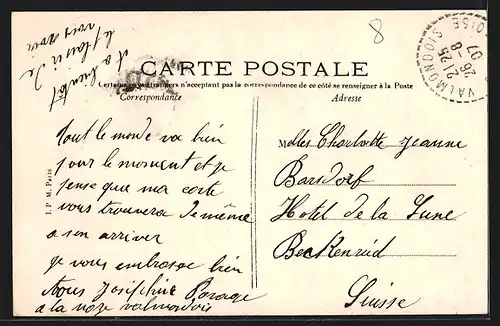 8
VALMONDOIS SEINE-ET-OISE
21 25
26-8
07
CARTE POSTALE
Certains pays étrangers n'acceptant pas la correspondance de ce côté se renseigner à la Poste
Correspondance
Adresse
a bientot
le plaisir de
vous voir
tout le monde va bien
pour le moment et je
pense que ma carte
vous trouvera de même
a son arriver
je vous embrasse bien
Josephine
a la noze valmondois
I. P. M. Paris
Melles Charlotte Jeanne
Barsdorf
Hotel de la Lune
Beckenried
Suisse